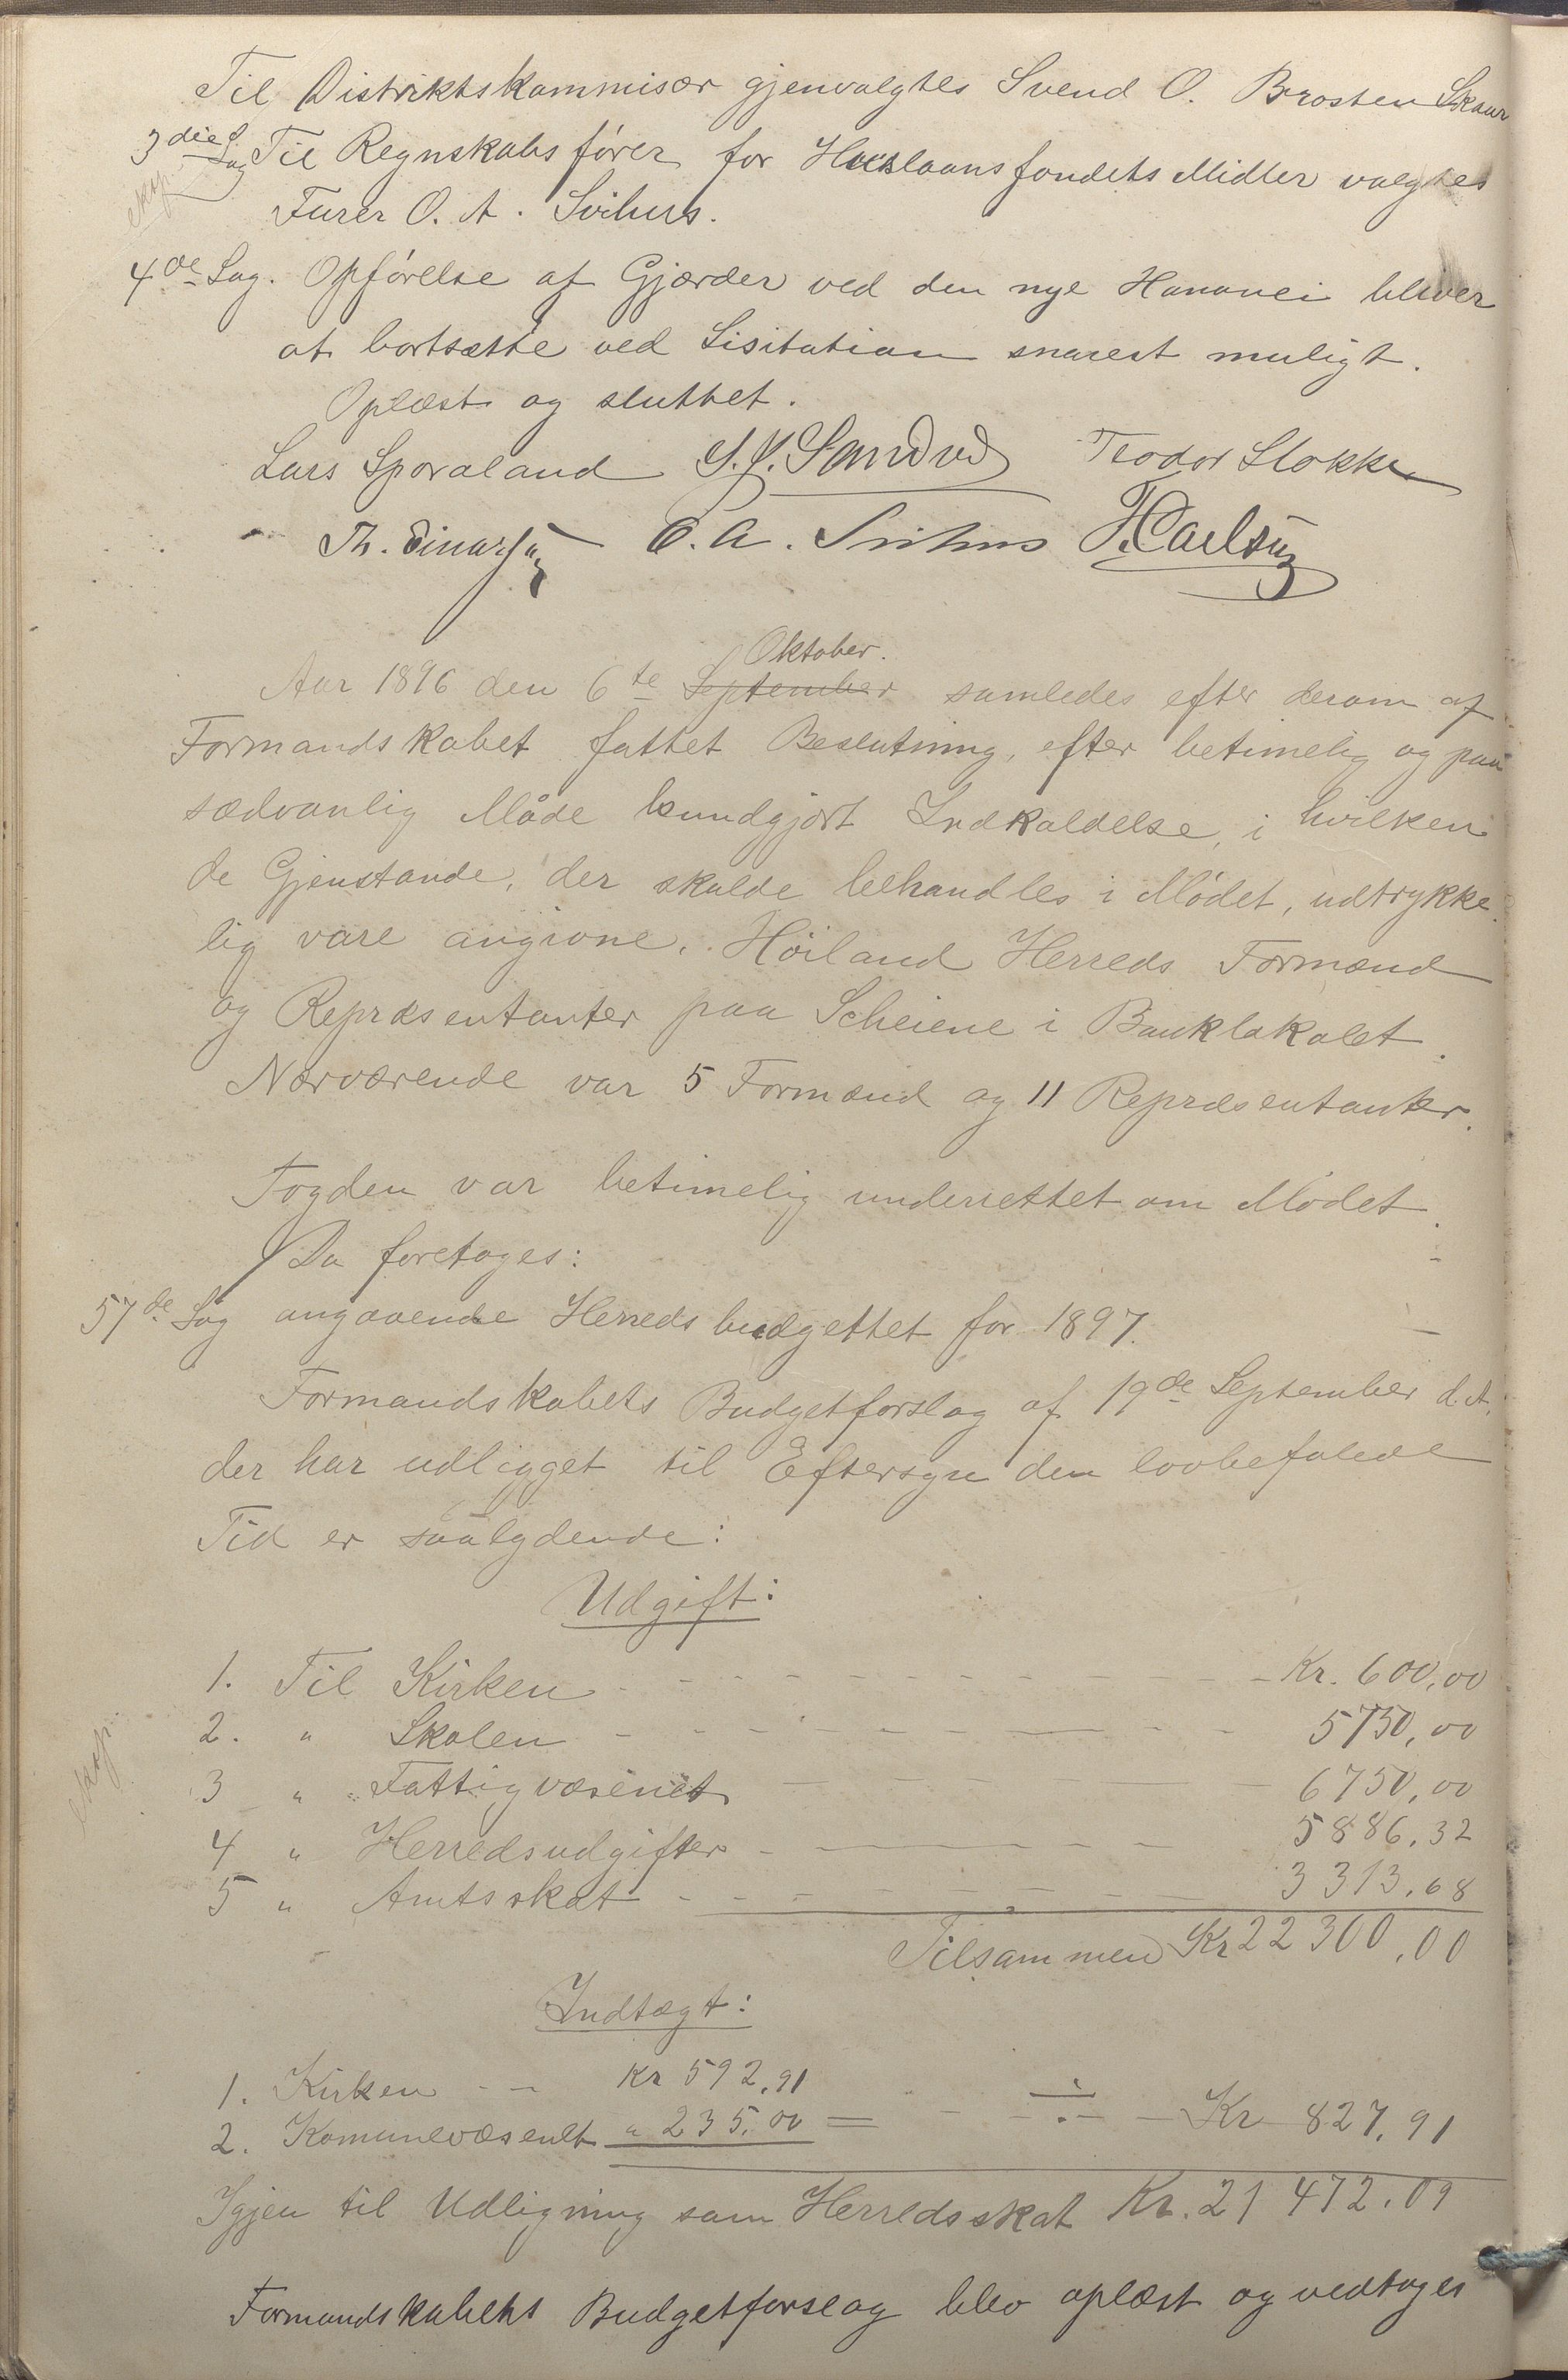 Til Distriktskommisær gjenvalgtes Svend O. Brosten Skaar
3die Sag Til Regnskabsfører for Huslaansfondets Midler valgtes
eksp.
Furer O. A. Svihus.
4de Sag. Opførelse af Gjærder ved den nye Hanavei bliver
at bortsætte ved Lisitation snarest muligt.
Oplæst og sluttet.
Lars Sporaland S. J. Sandved Teodor Stokke
Th. Einarsen O. A. Svihus T. Carlsen
Oktober.
Aar 1896 den 6te September samledes efter derom af
Formandskabet fattet Beslutning, efter betimelig og paa
sædvanlig Måde kundgjort Indkaldelse, i hvilken
de Gjenstande, der skulde behandles i Mødet, udtrykke
lig vare angivne, Höiland Herreds Formænd
og Repræsentanter paa Scheiene i Banklokalet.
Nærværende var 5 Formænd og 11 Repræsentanter.
Fogden var betimelig underrettet om Mødet.
Da foretoges:
57de Sag angaaende Herredsbudgettet for 1897.
Formandskabets Budgetforslag af 19de September d. A.
der har udligget til Eftersyn den lovbefalede
Tid er saalydende:
Udgift:
1. Til Kirken - - - - - Kr. 600,00
2. " Skolen - - - - - 5750,00
eksp.
3 " Fattigvæsenet - - - 6750,00
4 " Herredsudgifter - - - 5886,32
5 " Amtsskat - - - - - 3313,68
Tilsammen Kr 22300,00
Indtægt:
1. Kirken - - Kr 592,91
2. Komunevæsenet " 235,00 = - - ÷ - Kr 827,91
Igjen til Udligning som Herredsskat Kr. 21472,09
Formandskabets Budgetforslag blev oplæst og vedtoges